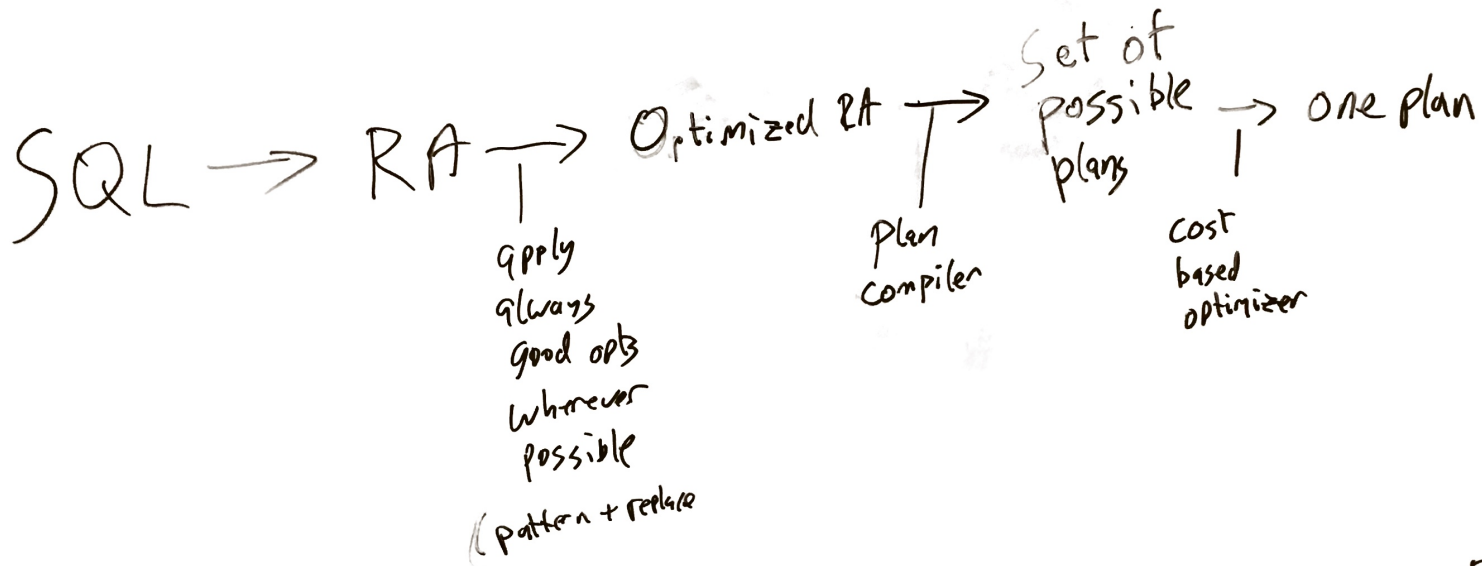 SQL → RA → Optimized RA → Set of possible plans → one plan
apply
always
good opts
wherever
possible
(pattern + replace
Plan
compiler
cost
based
optimizer